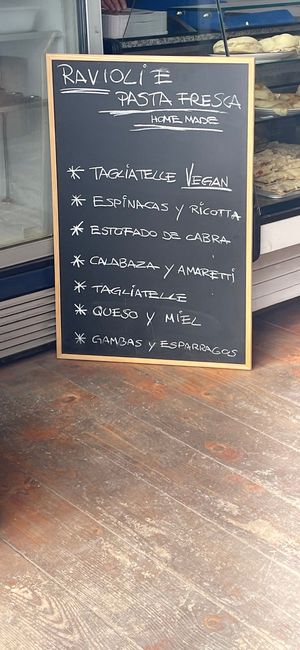 RAVIOLI E
PASTA FRESCA
HOME MADE
* TAGLIATELLE VEGAN
* ESPINACAS Y RICOTTA
* ESTOFADO DE CABRA
* CALABAZA Y AMARETTI
* TAGLIATELLE
* QUESO Y MIEL
* GAMBAS Y ESPARRAGOS